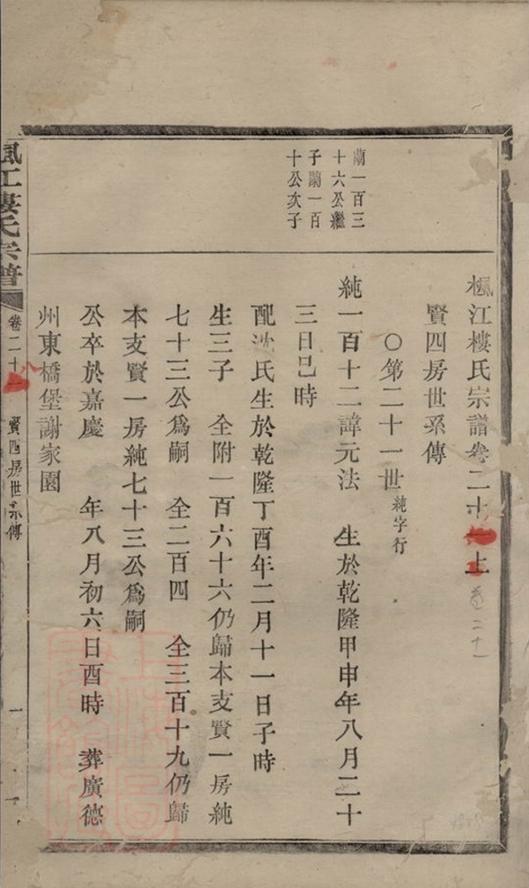 楓江樓氏宗譜卷二十一上
卷二十一
賢四房世系傳
○第二十一世純字行
蘭一百三
十六公繼
子蘭一百
十公次子
純一百十二諱元法 生於乾隆甲申年八月二十
三日巳時
配沈氏生於乾隆丁酉年二月十一日子時
生三子 全附一百六十六仍歸本支賢一房純
七十三公爲嗣 全二百四 全三百十九仍歸
本支賢一房純七十三公爲嗣
公卒於嘉慶 年八月初六日酉時 葬廣德
州東橋堡謝家園
楓江樓氏宗譜
卷二十一
賢四房世系傳
一